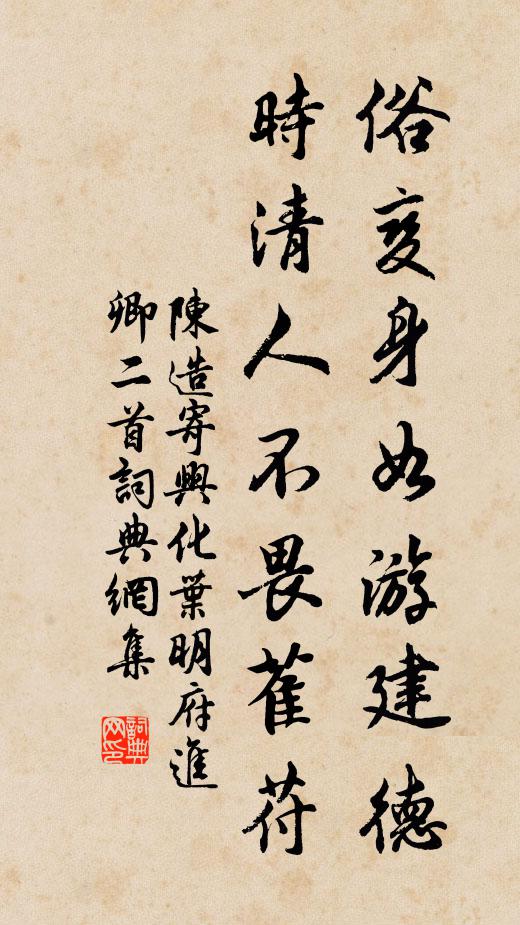 俗变身如游建德
時清人不畏萑苻
陳造寄興化葉明府進
卿二首詞典網集
詞典網印